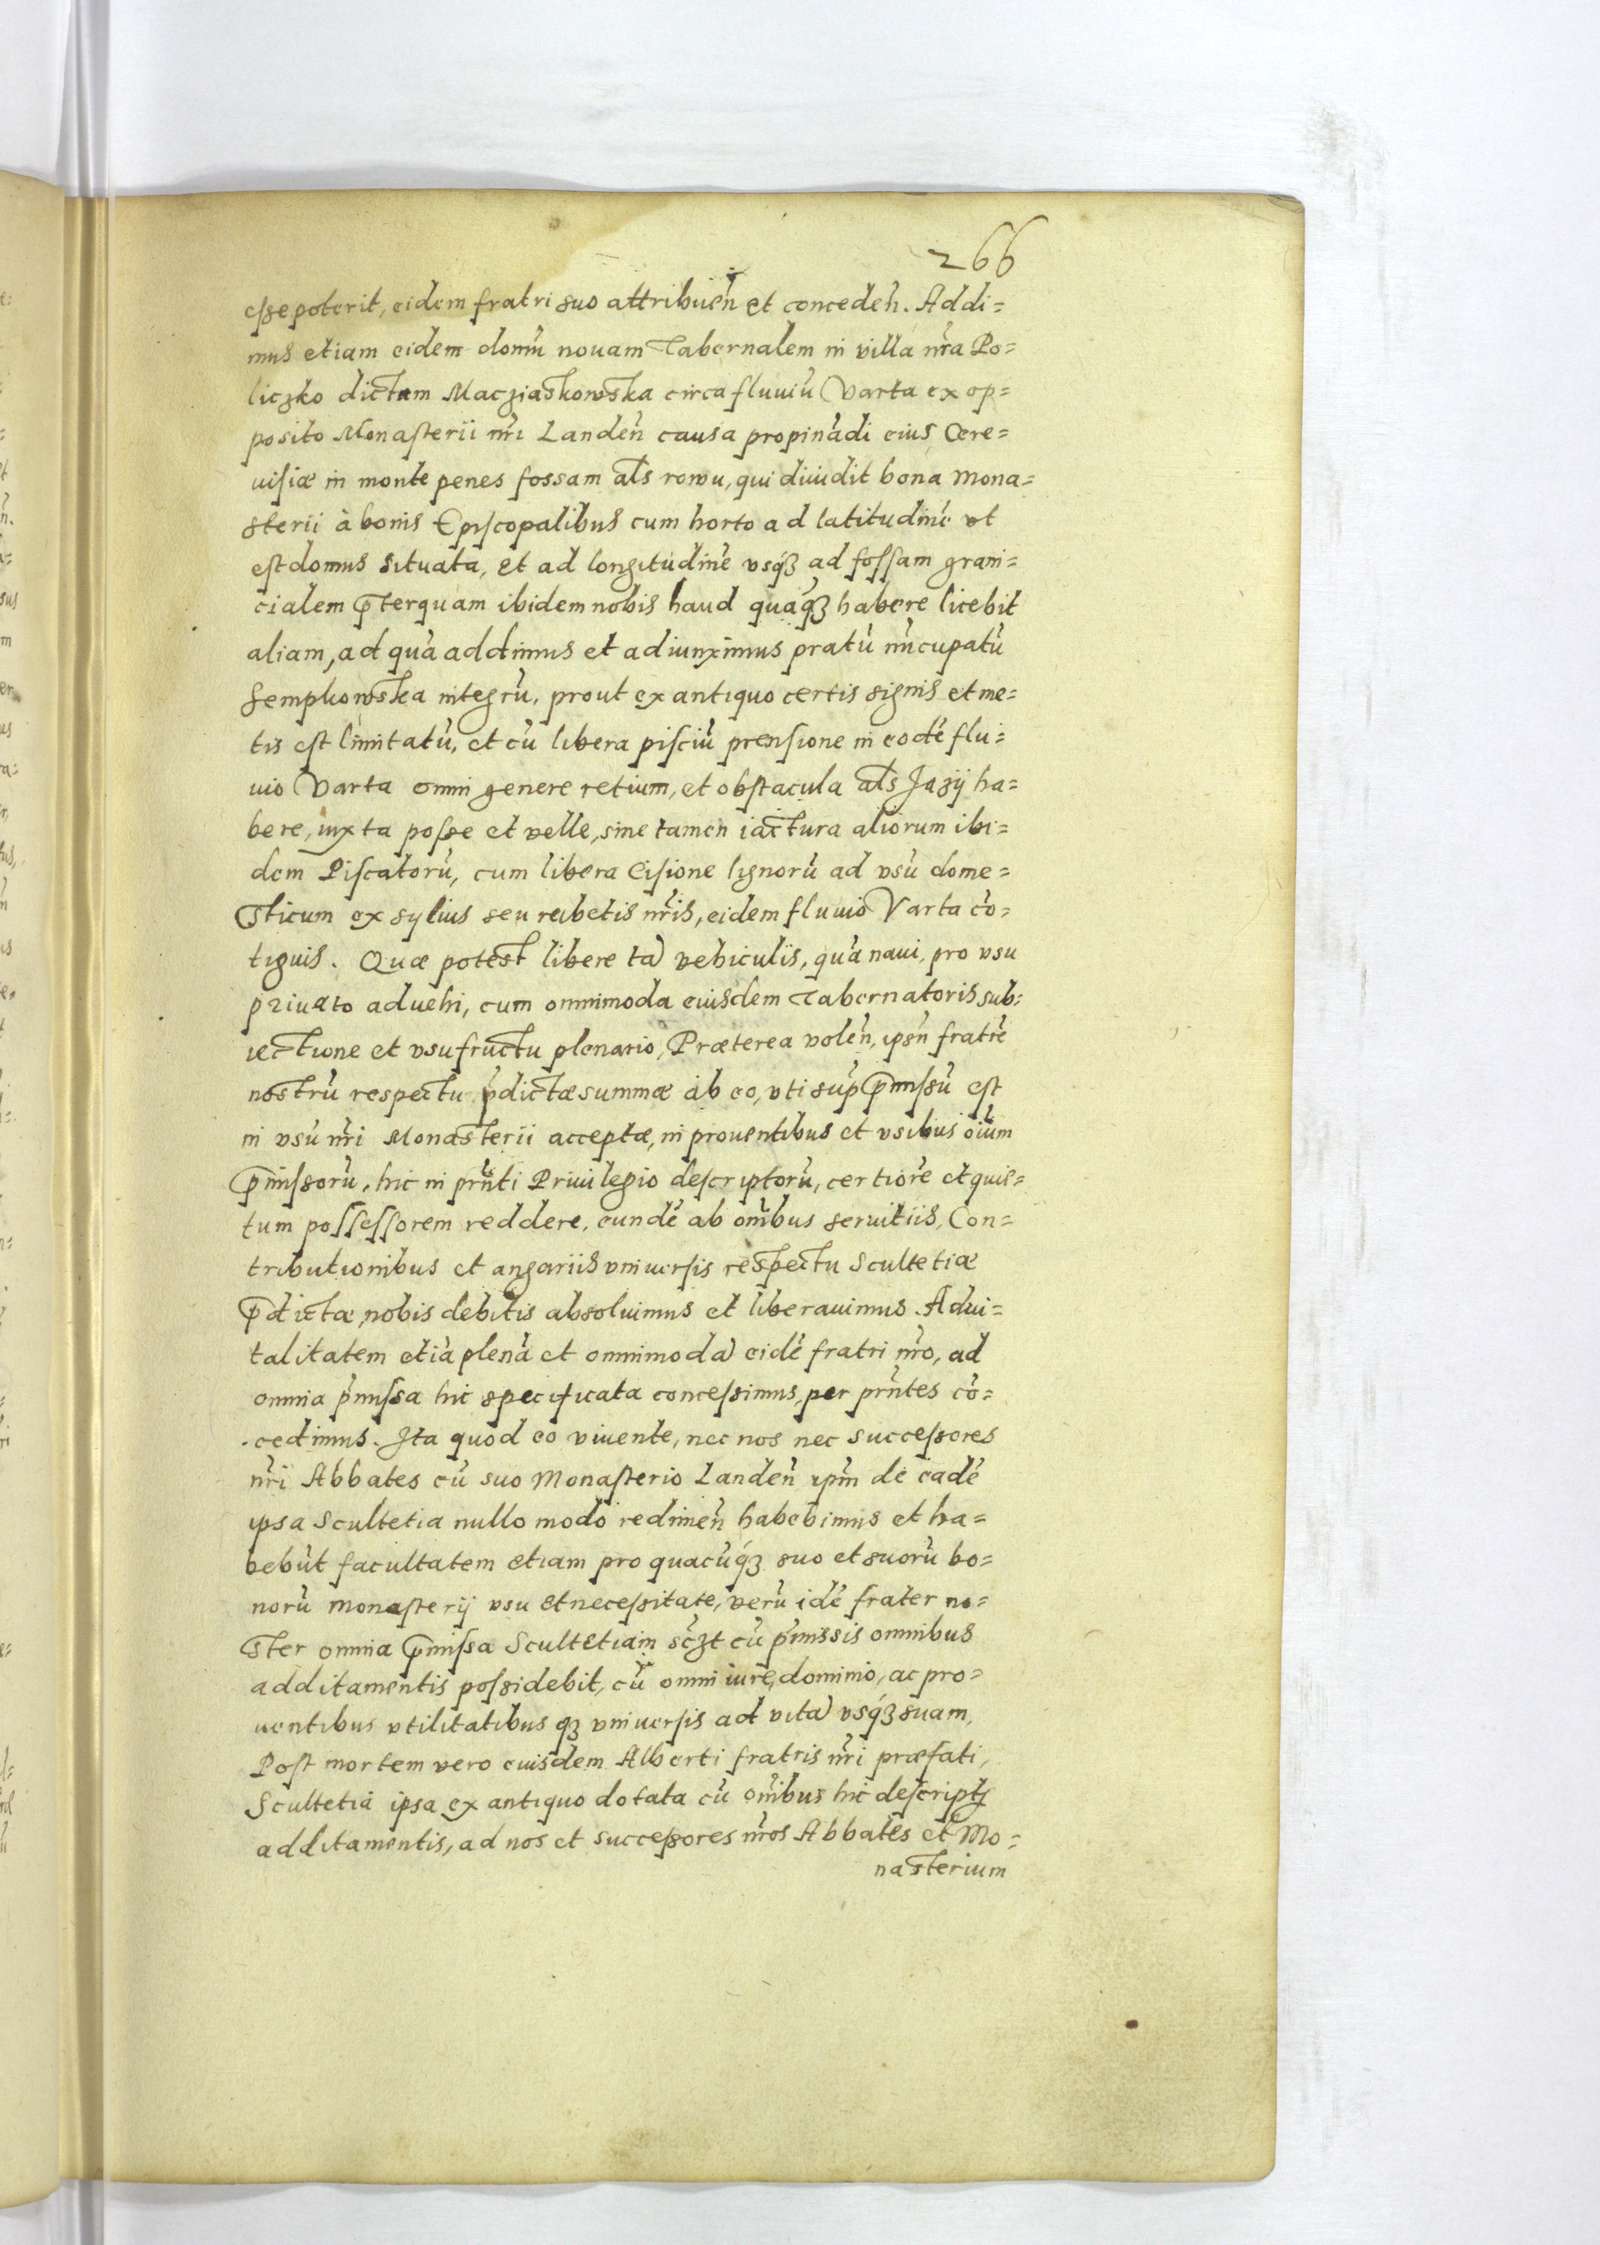 266
esse poterit, eidem fratri suo attribuen̄ et conceden̄. Addi=
mus etiam eidem domū nouam Tabernalem in villa nr̄a Po=
liczko dictam Macziaskowska circa fluuiū Varta ex op=
posito Monasterii nr̄i Landen̄ causa propinādi eius Cere=
uisiæ in monte penes fossam als̄ rowu, qui diuidit bona Mona=
sterii à bonis Episcopalibus cum horto ad latitudinē vt
est domus situata, et ad longitudinē vsq́ȝ ad fossam grani=
cialem p̄terquam ibidem nobis haud quāq́ȝ habere licebit
aliam, ad quā addimus et adiunximus pratū nūcupatū
Sempkowska integrū, prout ex antiquo certis signis et me=
tis est limitatū, et cū libera pisciū prensione in eodē flu=
uio Varta omni genere retium, et obstacula als̄ Jazÿ ha=
bere, iuxta posse et velle, sine tamen iactura aliorum ibi=
dem Piscatorū, cum libera Cisione lignorū ad vsū dome=
sticum ex syluis seu rubetis nr̄is, eidem fluuio Varta cō=
tiguis. Quæ potest libere tā vehiculis, quā naui, pro vsu
priuato aduehi, cum omnimoda eiusdem Tabernatoris sub=
iectione et vsufructu plenario, Præterea volen̄, ipsn̄ fratrē
nostrū respectu p̄dictæ summæ ab eo, vti sup̄ p̄missū est
in vsū nr̄i Monasterii acceptæ, in prouentibus et vsibus oīum
p̄missorū, hic in prn̄ti Priuilegio descriptorū, certiorē et quie=
tum possessorem reddere, eundē ab om̄ibus seruitiis, Con=
tributionibus et angariis vniuersis respectu Scultetiæ
p̄dictæ, nobis debitis absoluimus et liberauimus. Aduí=
talitatem etiā plenā et omnimodā eidē fratri nr̄o, ad
omnia p̄missa hic specificata concessimus, per prn̄tes cō=
cedimus. Ita quod eo viuente, nec nos nec successores
nr̄i Abbates cū suo Monasterio Landen̄ ipm̄ de eadē
ipsa Scultetia nullo modo redimen̄ habebimus et ha=
bebūt facultatem etiam pro quacūq́ȝ suo et suorū bo=
norū monasterij vsu et necessitate, verū idē frater no=
ster omnia p̄missa Scultetiam sc̄ȝt cū p̄missis omnibus
additamentis possidebit, cū omni iure, dominio, ac pro=
uentibus vtilitatibus qȝ vniuersis ad vitā vsq́ȝ suam,
Post mortem vero eiusdem Alberti fratris nr̄i præfati,
Scultetia ipsa ex antiquo dotata cū om̄ibus hic descriptȝ
additamentis, ad nos et successores nr̄os Abbates et Mo=
nasterium